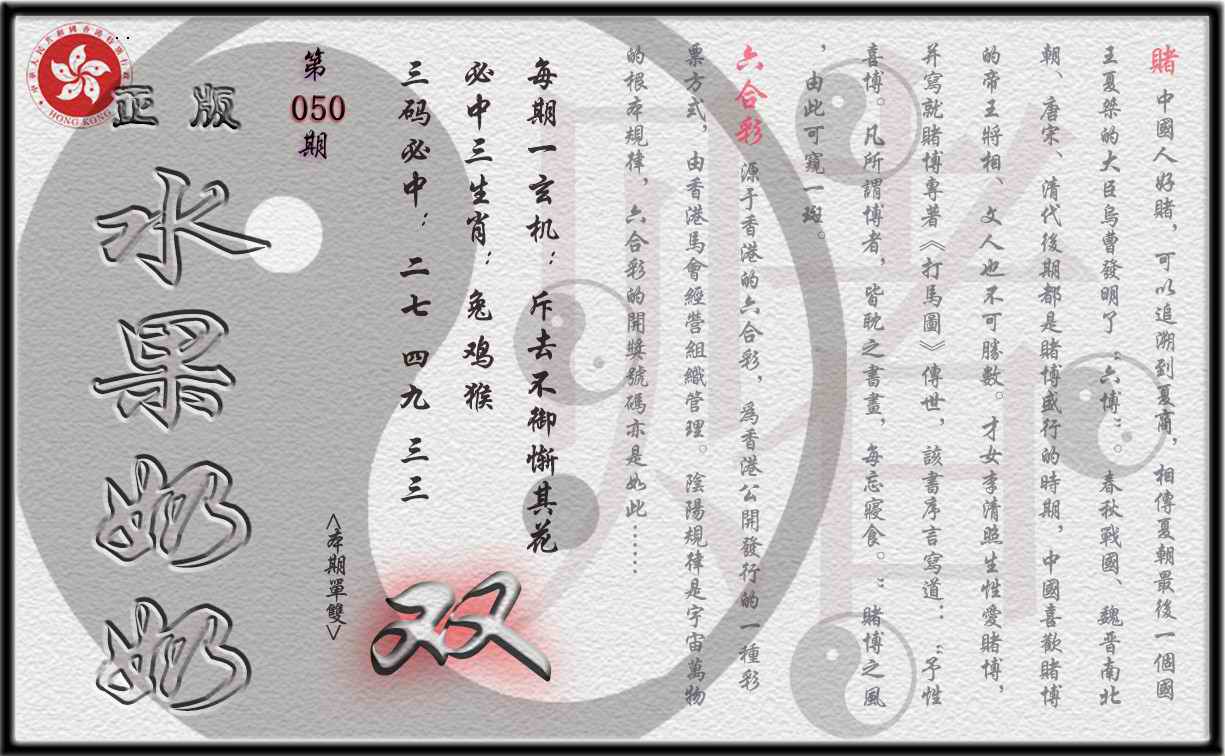 賭 中國人好賭，可以追溯到夏商，相傳夏朝最後一個國
王夏桀的大臣烏曹發明了“六博”。春秋戰國、魏晋南北
朝、唐宋、清代後期都是賭博盛行的時期，中國喜歡賭博
的帝王將相、文人也不可勝數。才女李清照生性愛賭博，
并寫就賭博專著《打馬圖》傳世，該書序言寫道：“予性
喜博。凡所謂博者，皆耽之書畫，每忘寢食。”賭博之風
，由此可窺一斑。
六合彩 源于香港的六合彩，爲香港公開發行的一種彩
票方式，由香港馬會經營組織管理。陰陽規律是宇宙萬物
的根本規律，六合彩的開獎號碼亦是如此……
每期一玄机：斥去不御惭其花
必中三生肖：兔鸡猴
三码必中：二七 四九 三三
双
<本期單雙>
第
050
期
正版
水果奶奶
中華人民共和國香港特別行政區
HONG KONG